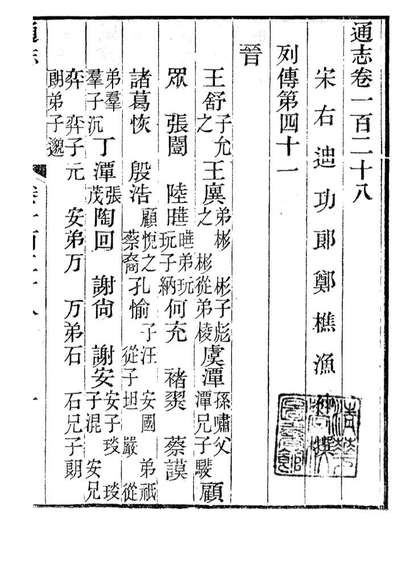 通志卷一百二十八
宋右迪功郎鄭樵漁仲撰
列傳第四十一
晉
王舒子允之王廙弟彬 彬子彪之 彬從弟棱虞潭孫嘯父 潭兄子騣顧
眾 張闓 陸曄曄弟玩 玩子納何充 褚翜 蔡謨
諸葛恢 殷浩顧悅之 蔡裔孔愉子汪 安國 弟祗 從子坦 嚴 從
弟羣 羣子沉丁潭張茂陶回 謝尚 謝安安子琰 琰子混 安兄
弈 弈子元 安弟万 万弟石 石兄子朗 朗弟子邈